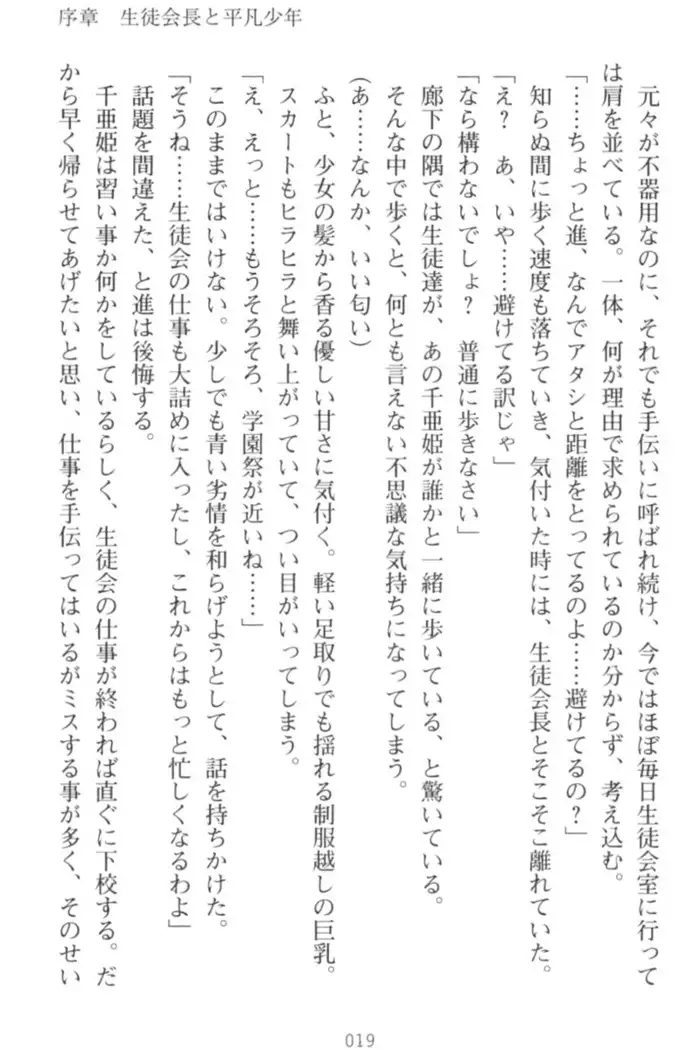 序章　生徒会長と平凡少年
元々が不器用なのに、それでも手伝いに呼ばれ続け、今ではほぼ毎日生徒会室に行って
は肩を並べている。一体、何が理由で求められているのか分からず、考え込む。
「……ちょっと進、なんでアタシと距離をとってるのよ……避けてるの？」
知らぬ間に歩く速度も落ちていき、気付いた時には、生徒会長とそこそこ離れていた。
「え？　あ、いや……避けてる訳じゃ」
「なら構わないでしょ？　普通に歩きなさい」
廊下の隅では生徒達が、あの千亜姫が誰かと一緒に歩いている、と驚いている。
そんな中で歩くと、何とも言えない不思議な気持ちになってしまう。
（あ……なんか、いい匂い）
ふと、少女の髪から香る優しい甘さに気付く。軽い足取りでも揺れる制服越しの巨乳。
スカートもヒラヒラと舞い上がっていて、つい目がいってしまう。
「え、えっと……もうそろそろ、学園祭が近いね……」
このままではいけない。少しでも青い劣情を和らげようとして、話を持ちかけた。
「そうね……生徒会の仕事も大詰めに入ったし、これからはもっと忙しくなるわよ」
話題を間違えた、と進は後悔する。
千亜姫は習い事か何かをしているらしく、生徒会の仕事が終われば直ぐに下校する。だ
から早く帰らせてあげたいと思い、仕事を手伝ってはいるがミスする事が多く、そのせい
019